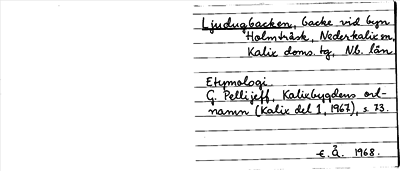 Ljudugbacken, backe vid byn
Holmträsk, Nederkalix sn,
Kalix doms. tg, Nb. län
Etymologi.
G. Pellijeff, Kalixbygdens ort-
namn (Kalix del 1, 1967), s. 73.
E.Å. 1968.